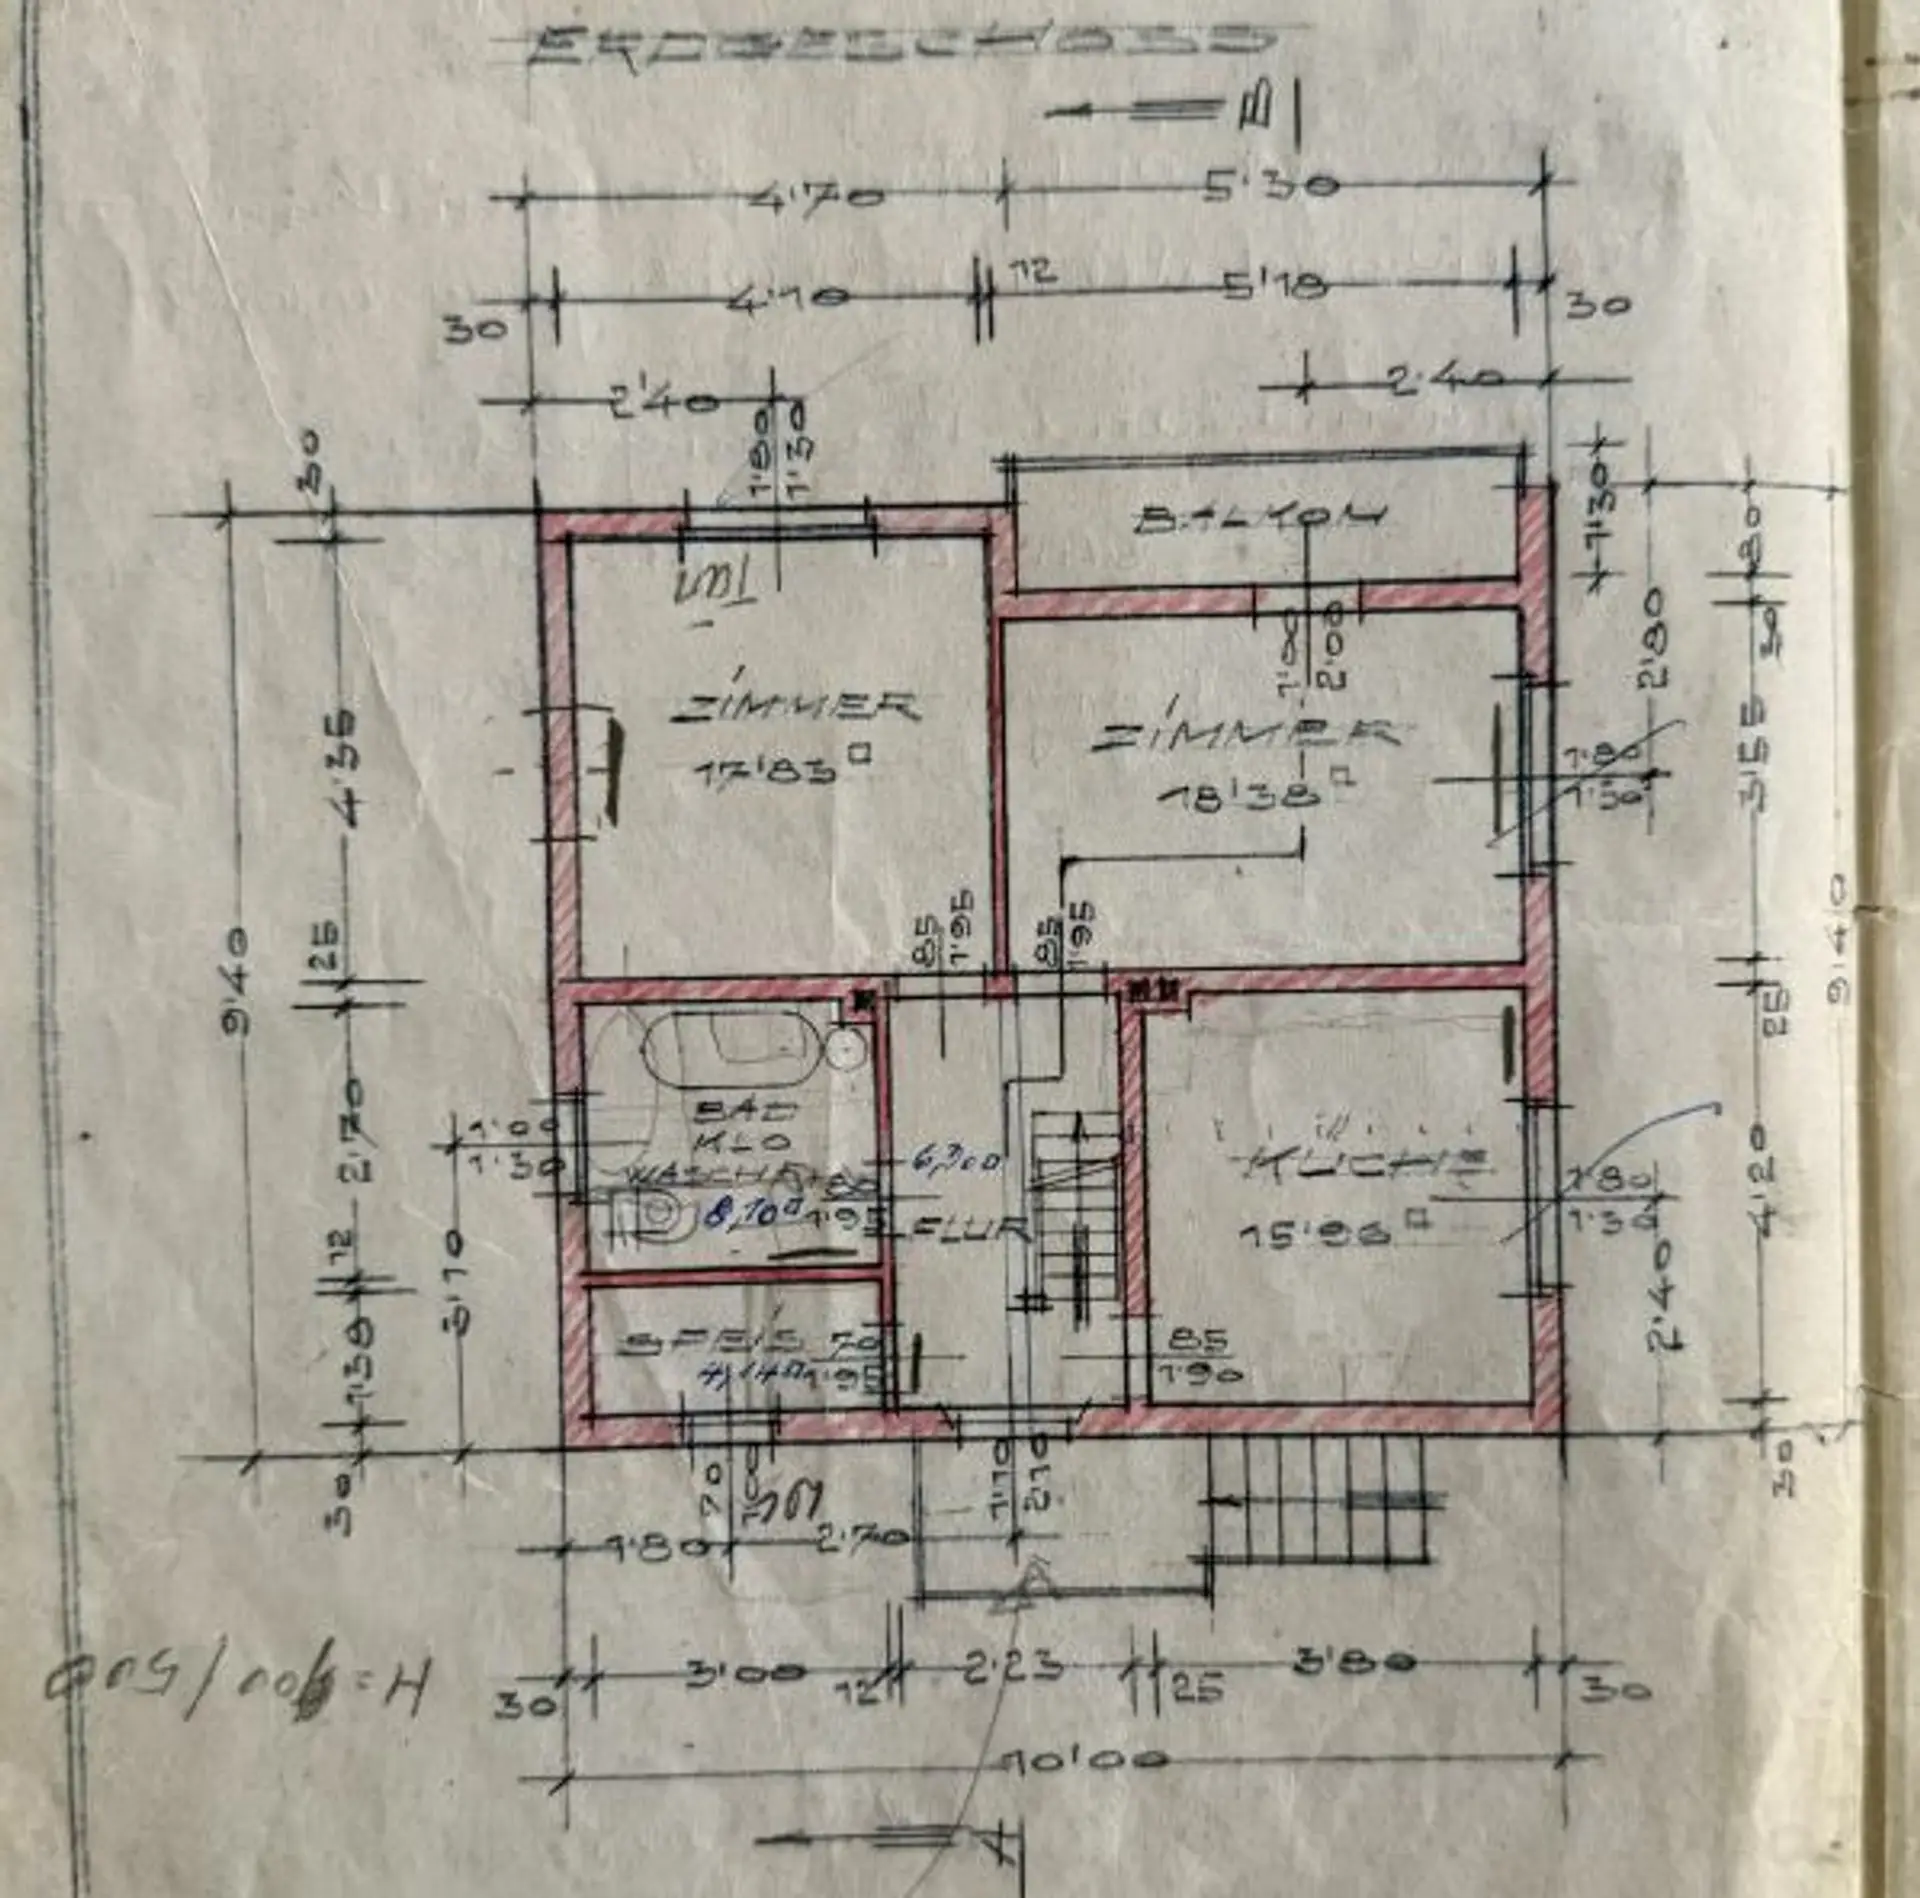 ERDGESCHOSS
B
4'70 5'30
30 4'10 12 5'18 30
2'40 2'40
1'80
1'30
BALKON
1'30
80
30
30
Tür
1'00
2'00
2'80
ZIMMER
17'83 □
ZIMMER
18'38 □
4'35
3'55
1'80
1'30
85
1'95
85
1'95
25
9'40
9'40
25
BAD
KLO
WASCHK
8,10 □
1'95
1'00
1'30
2'70
6,300
FLUR
KÜCHE
15'96 □
1'80
1'30
4'20
12
3'10
2'40
1'38
SPEIS 70
4,14 □ 1'95
85
1'90
30
30
70
1'00
1'10
2'10
1'80 2'70
H=400/500
30 3'00 12 2'23 25 3'80 30
10'00
A